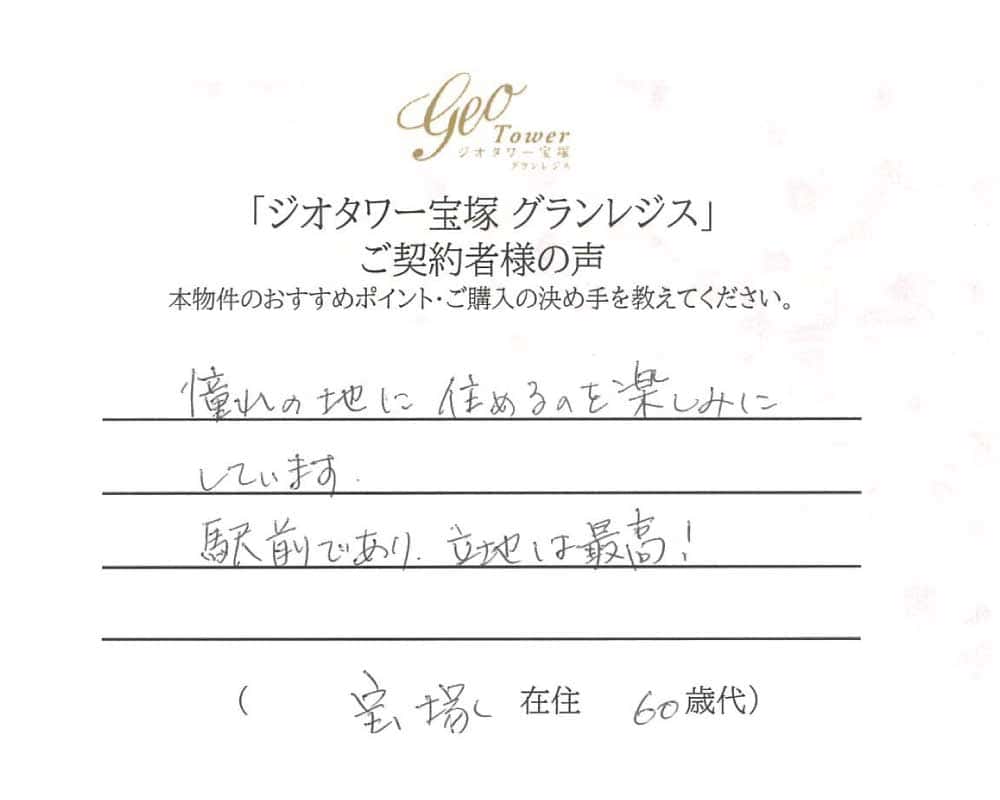 Geo
Tower
ジオタワー宝塚
グランレジス
「ジオタワー宝塚 グランレジス」
ご契約者様の声
本物件のおすすめポイント・ご購入の決め手を教えてください。
憧れの地に 住めるのを楽しみに
しています.
駅前であり. 立地は最高!
( 宝塚 在住 60歳代)